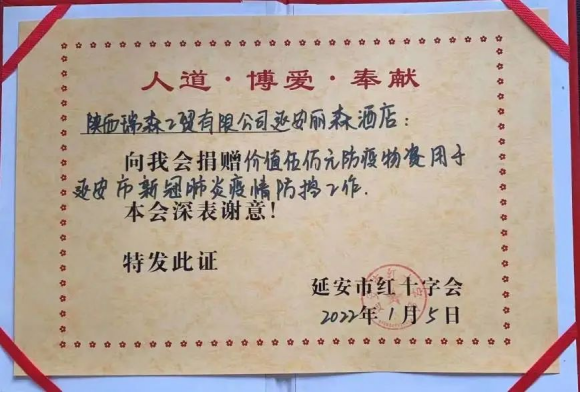 人道·博爱·奉献
陕西瑞森工贸有限公司延安丽森酒店：
向我会捐赠价值伍佰元防疫物资用于
延安市新冠肺炎疫情防挡工作.
本会深表谢意！
特发此证
延安市红十字会
2022年1月5日